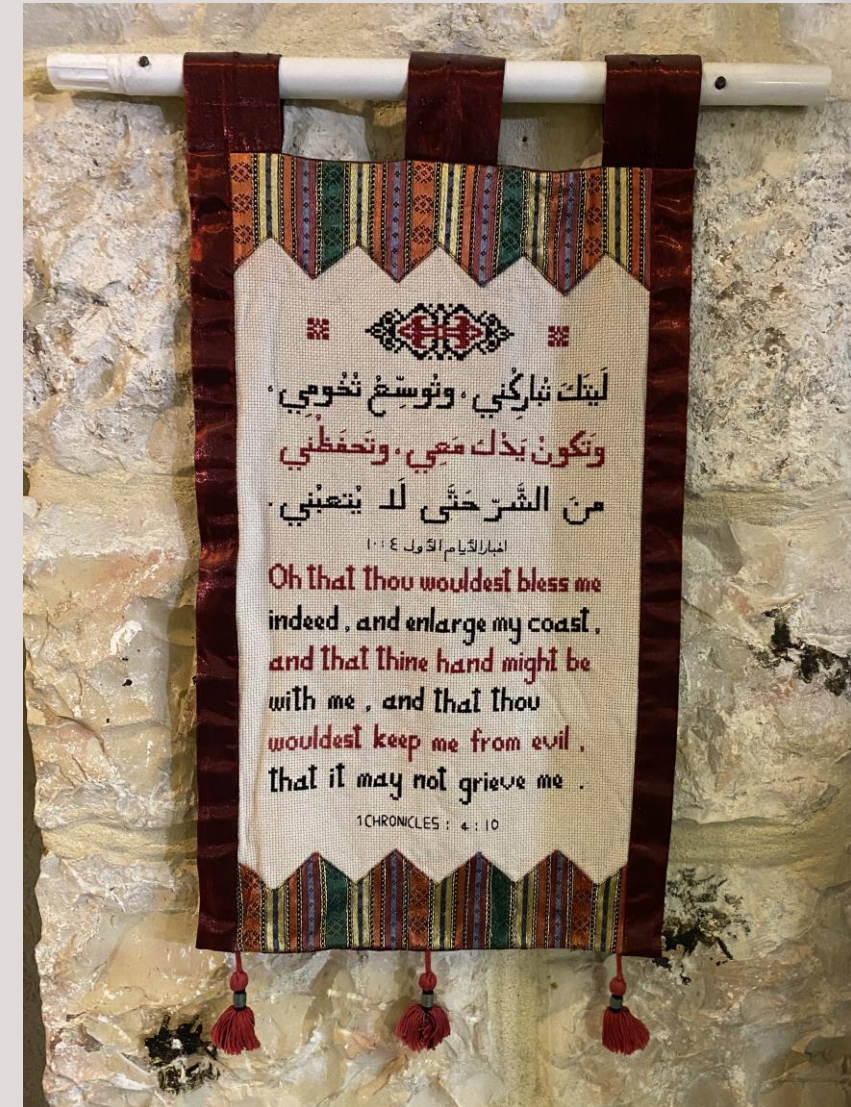 لَيتَكَ تُبارِكُني، وتُوسِّعُ تُخُومِي،
وَتَكونُ يَدُكَ مَعِي، وتَحفَظُني
مِنَ الشَّرّ حَتَّى لَا يُتعِبُني.
اخبار الأيام الأول ٤ : ١٠
Oh that thou wouldest bless me
indeed, and enlarge my coast,
and that thine hand might be
with me, and that thou
wouldest keep me from evil,
that it may not grieve me.
1CHRONICLES : 4 : 10